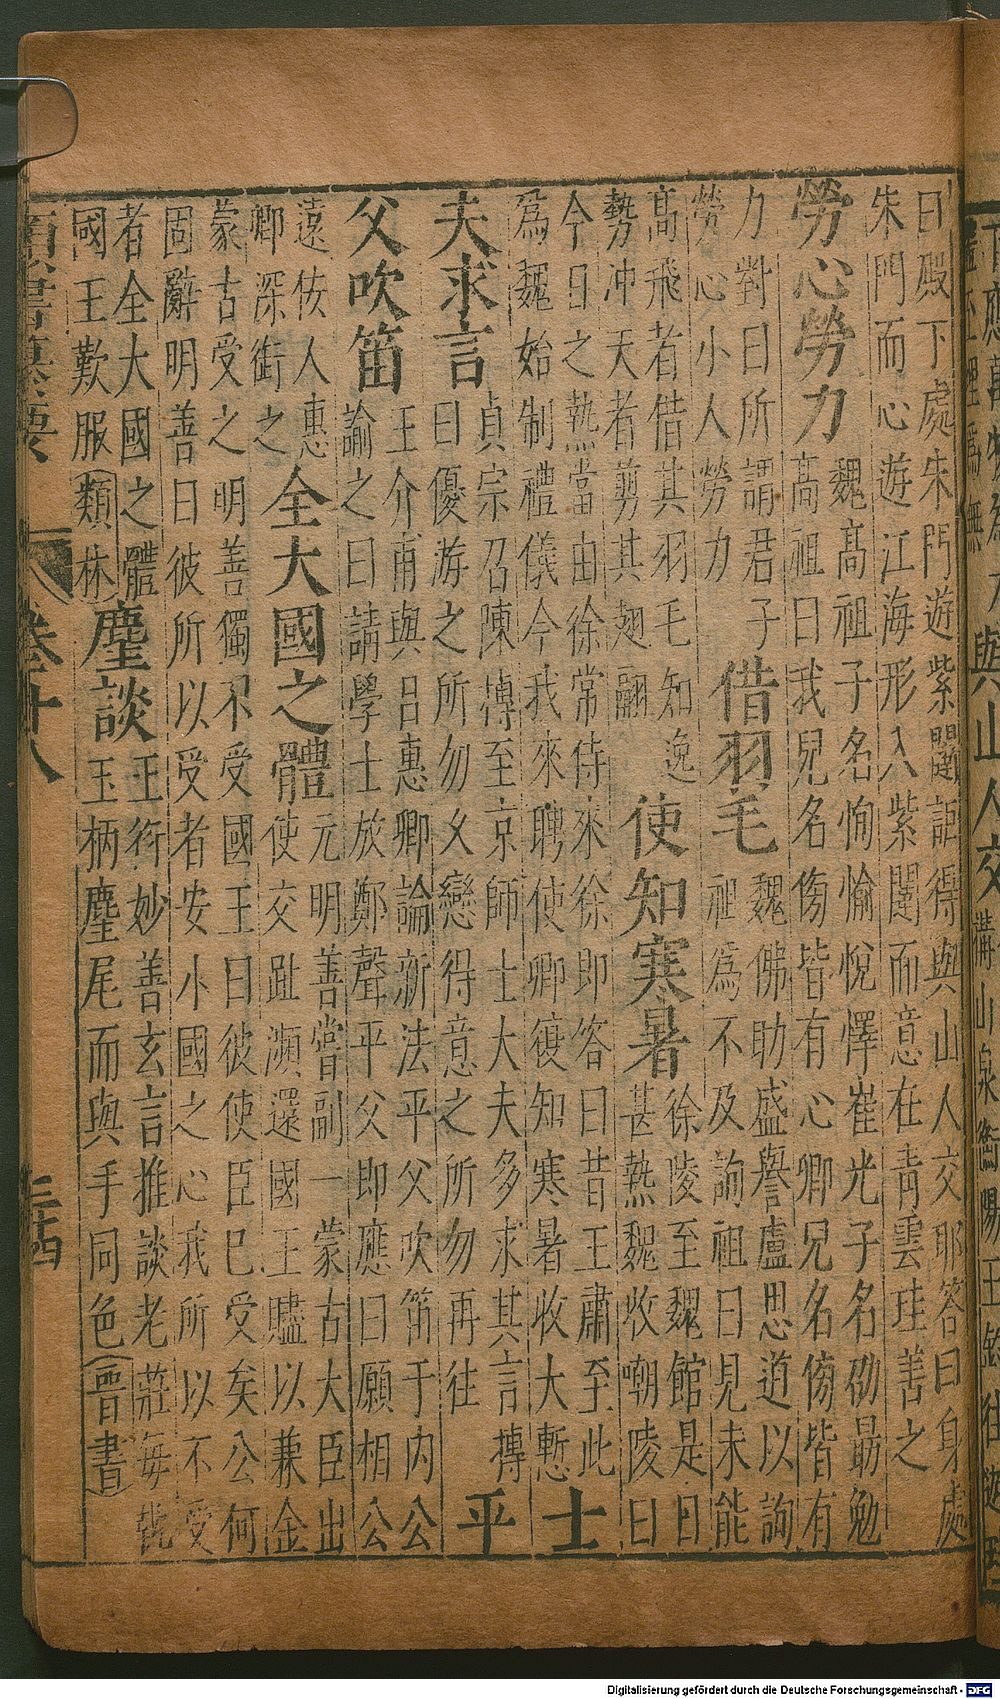 與山人交
衡陽王鈞往遊
曰殿下處朱門遊紫闥詎得與山人交耶答曰身處
朱門而心遊江海形入紫闥而意在青雲珪善之
勞心勞力
魏高祖子名恂愉悅懌崔光子名劭勗勉
高祖曰我兒名傍皆有心卿兄名傍皆有
力對曰所謂君子
勞心小人勞力
借羽毛
魏佛助盛譽盧思道以詢
祖為不及詢祖曰見未能
高飛者借其羽毛知逸
勢冲天者剪其翅翮
使知寒暑
徐陵至魏館是日
甚熱魏收嘲陵曰
今日之熱當由徐常侍來徐即答曰昔王肅至此
為魏始制禮儀今我來聘使卿復知寒暑收大慙
士
夫求言
貞宗召陳摶至京師士大夫多求其言摶
曰優游之所勿久戀得意之所勿再往
平
父吹笛
王介甫與呂惠卿論新法平父吹笛于內公
諭之曰請學士放鄭聲平父即應曰願相公
遠佞人惠
卿深銜之
全大國之體
元明善嘗副一蒙古大臣出
使交趾瀕還國王贐以兼金
蒙古受之明善獨不受國王曰彼使臣已受矣公何
固辭明善曰彼所以受者安小國之心我所以不受
者全大國之體
國王歎服類林
麈談
王衍妙善玄言推談老莊每執
玉柄麈尾而與手同色晉書
卷十八
Digitalisierung gefördert durch die Deutsche Forschungsgemeinschaft - DFG